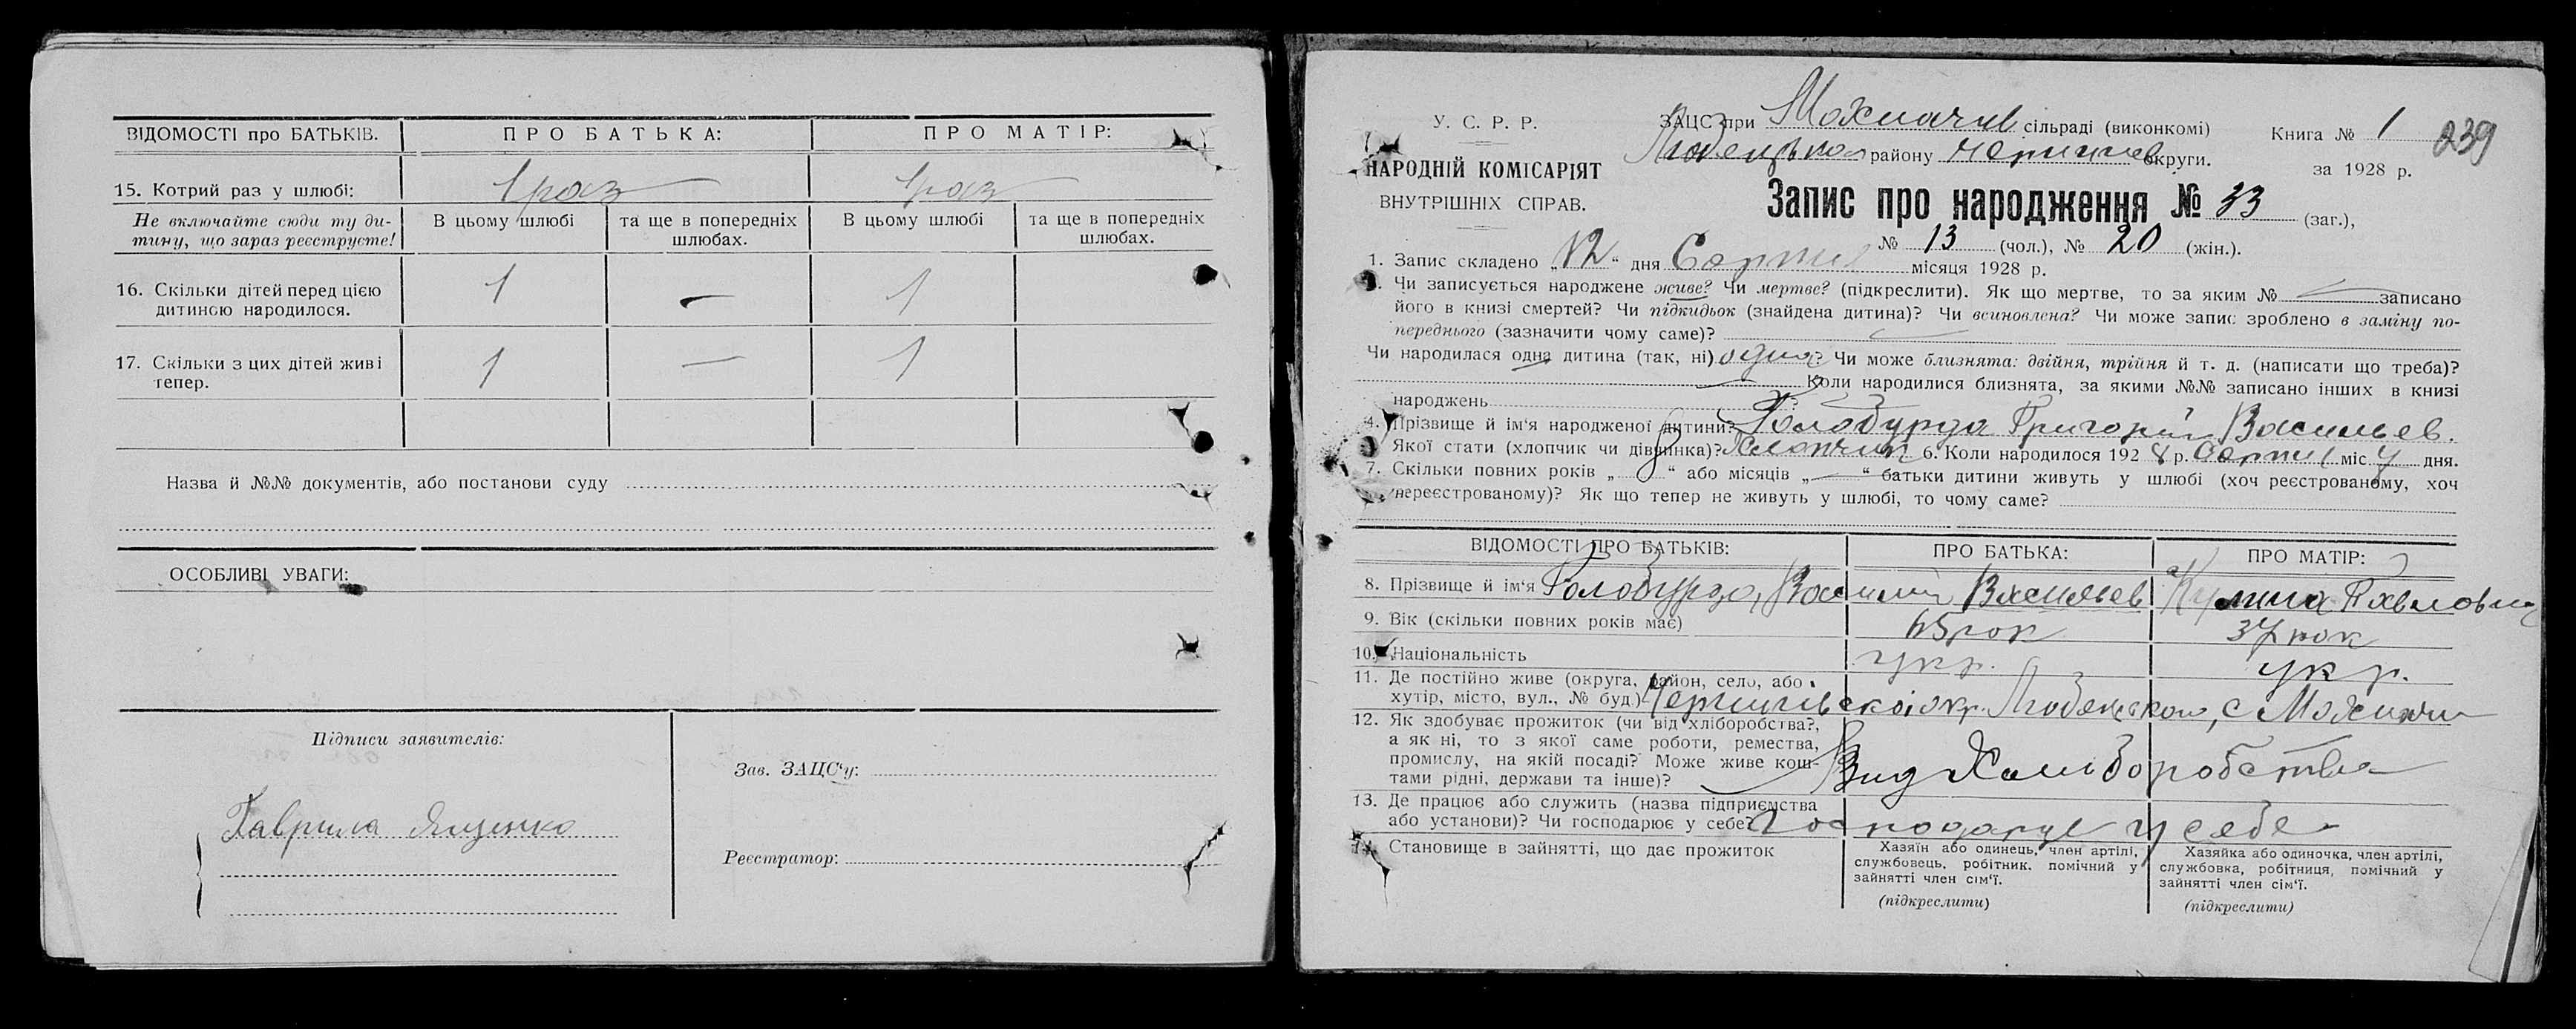 ВІДОМОСТІ про БАТЬКІВ. ПРО БАТЬКА: ПРО МАТІР:
15. Котрий раз у шлюбі: 1 раз 1 раз
Не включайте сюди ту ди-
тину, що зараз реєструєте!
В цьому шлюбі
та ще в попередніх
шлюбах.
В цьому шлюбі
та ще в попередніх
шлюбах.
16. Скільки дітей перед цією
дитиною народилося.
1 — 1
17. Скільки з цих дітей живі
тепер.
1 — 1
Назва й №№ документів, або постанови суду
ОСОБЛИВІ УВАГИ:
Підписи заявителів:
Гаврила Ященко
Зав. ЗАЦС'у:
Реєстратор:
У. С. Р. Р.
НАРОДНІЙ КОМІСАРІЯТ
ВНУТРІШНІХ СПРАВ.
ЗАЦС при сільраді (виконкомі)
району округи.
Книга № 1 239
за 1928 р.
Запис про народження № 33 (заг.),
№ 13 (чол.), № 20 (жін.).
1. Запис складено „12“ дня місяця 1928 р.
Чи записується народжене живе? Чи мертве? (підкреслити). Як що мертве, то за яким № — записано
його в книзі смертей? Чи підкидьок (знайдена дитина)? Чи всиновлена? Чи може запис зроблено в заміну по-
переднього (зазначити чому саме)? —
Чи народилася одна дитина (так, ні) одна? Чи може близнята: двійня, трійня й т. д. (написати що треба)?
— Коли народилися близнята, за якими №№ записано інших в книзі
народжень
4. Прізвище й ім'я народженої дитини? Голобурда Григорий Васильев.
Якої стати (хлопчик чи дівчинка)? Хлопчик 6. Коли народилося 1928 р. міс. дня.
7. Скільки повних років „8“ або місяців „—“ батьки дитини живуть у шлюбі (хоч реєстрованому, хоч
нереєстрованому)? Як що тепер не живуть у шлюбі, то чому саме?
ВІДОМОСТІ ПРО БАТЬКІВ: ПРО БАТЬКА: ПРО МАТІР:
8. Прізвище й ім'я Голобурда, Василий Васильев Кулина Павловна
9. Вік (скільки повних років має) рок 37 рок
10. Національність укр. укр.
11. Де постійно живе (округа, район, село, або
хутір, місто, вул., № буд.)
12. Як здобуває прожиток (чи від хліборобства?,
а як ні, то з якої саме роботи, ремества,
промислу, на якій посаді? Може живе кош-
тами рідні, держави та інше)?
13. Де працює або служить (назва підприємства
або установи)? Чи господарює у себе? Господарує у себе
Становище в зайнятті, що дає прожиток
Хазяїн або одинець, член артілі,
службовець, робітник, помічний у
зайнятті член сім'ї.
(підкреслити)
Хазяйка або одиночка, член артілі,
службовка, робітниця, помічний у
зайнятті член сім'ї.
(підкреслити)